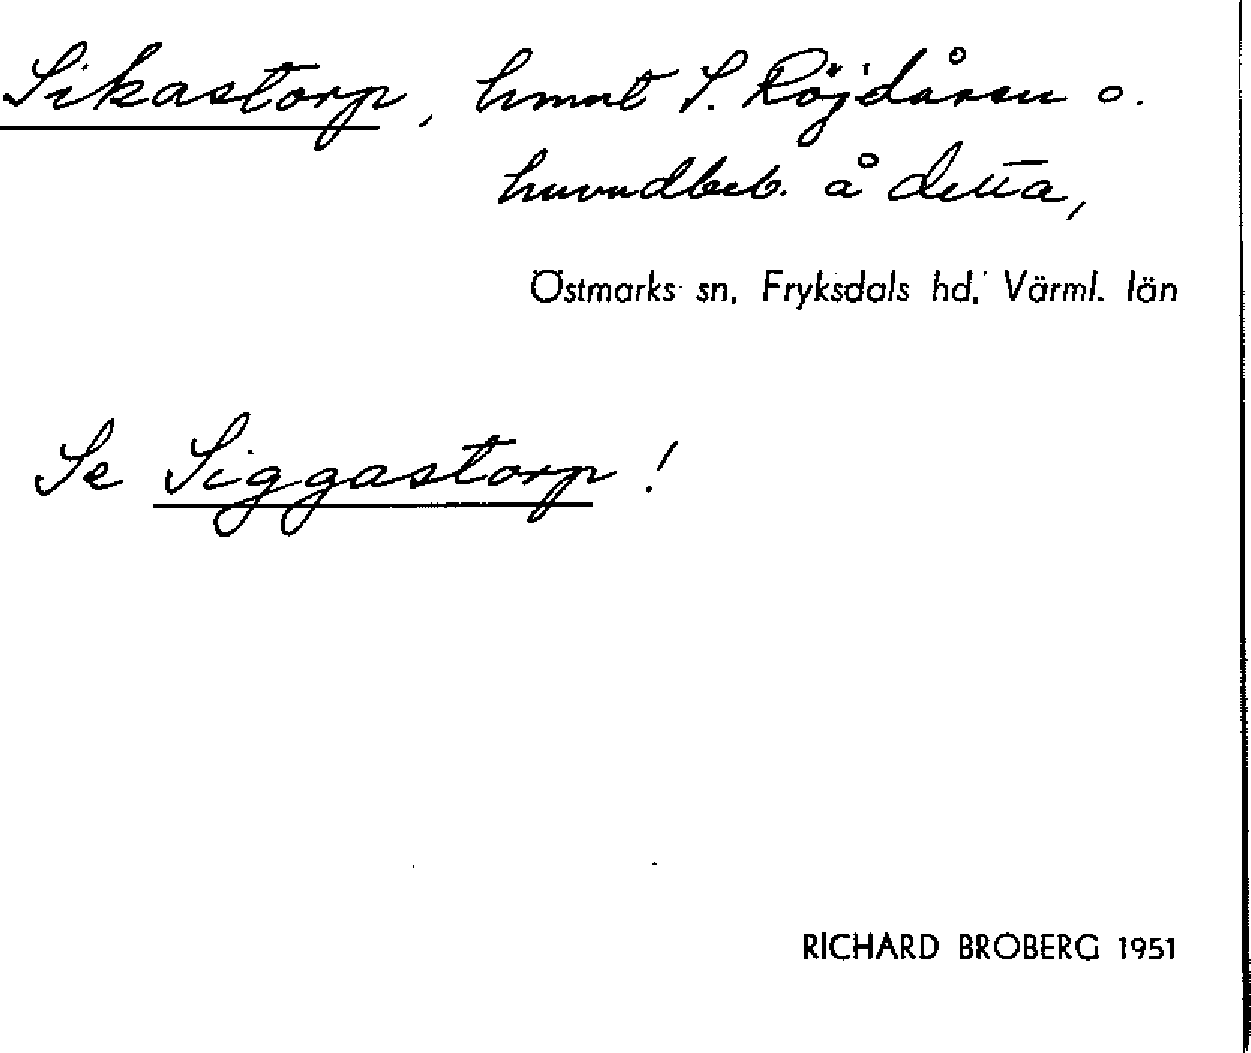 Sikastorp, hmnt S. Röjdåsen o.
huvudbeb. å detta,
Östmarks sn, Fryksdals hd, Värml. län
Se Siggastorp!
RICHARD BROBERG 1951